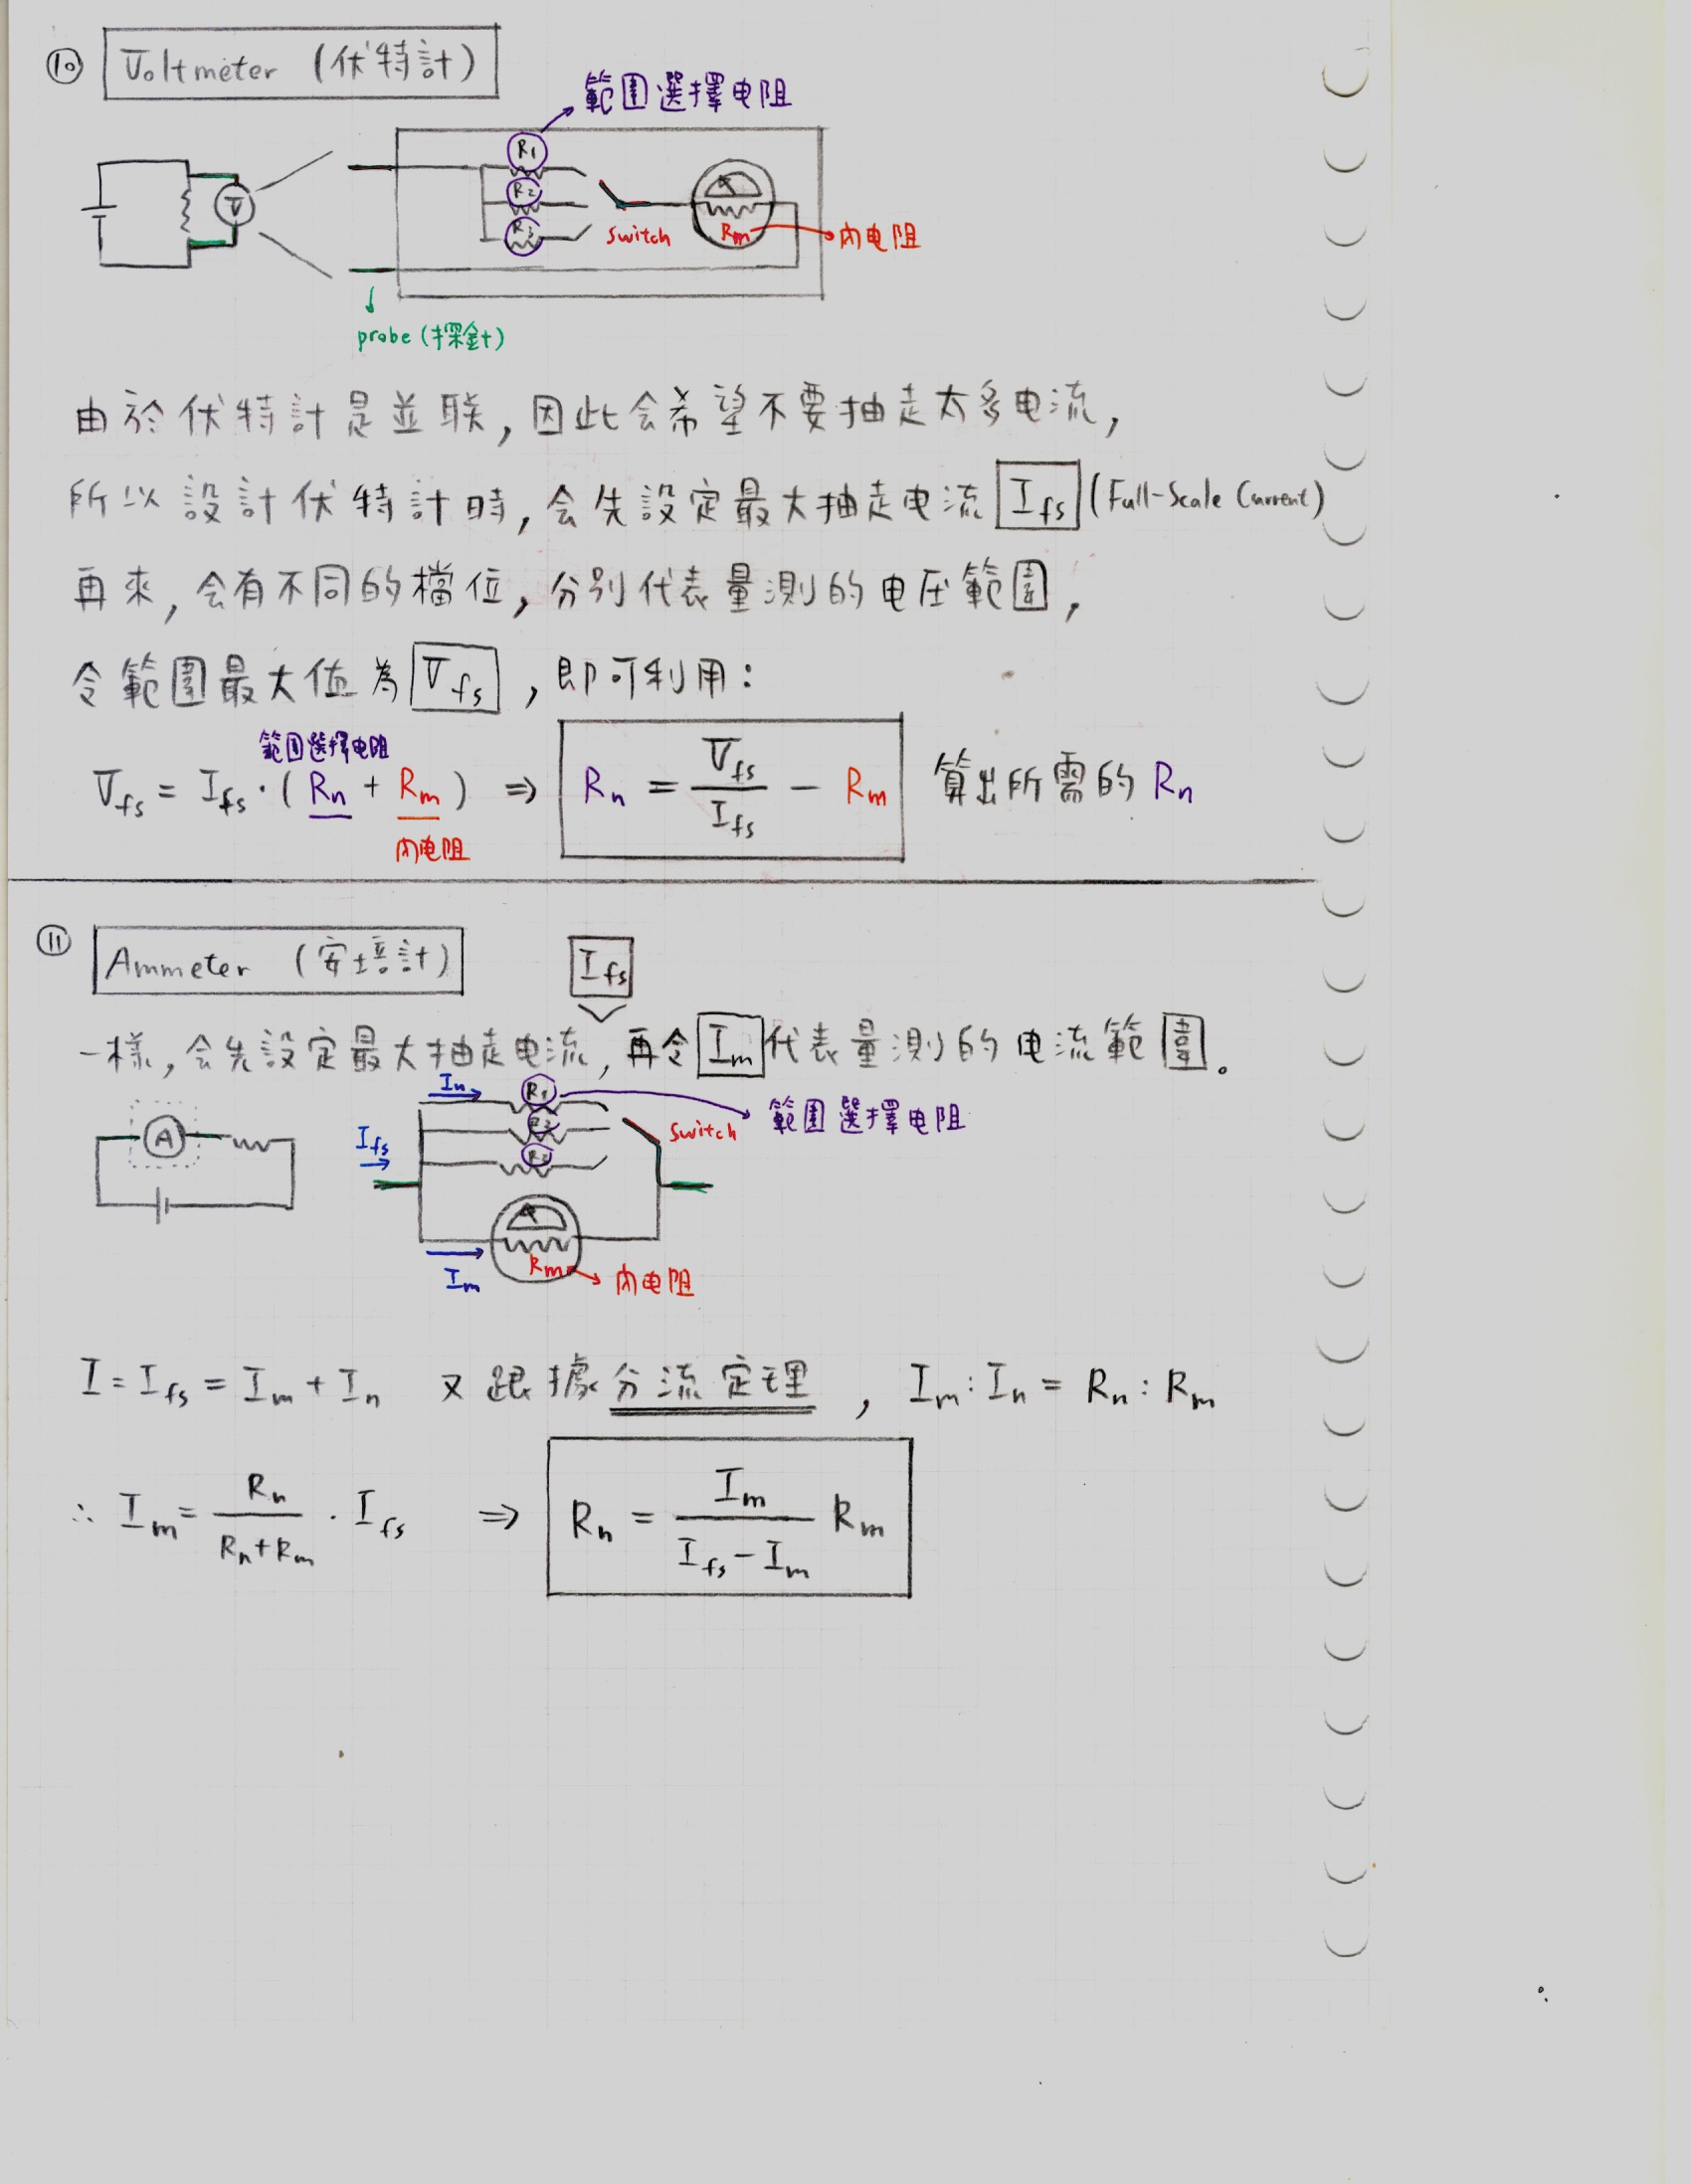 ⑩ Voltmeter (伏特計)
範囲選擇电阻
R1
R2
R3
V
switch
Rm
內电阻
probe (探針)
由於伏特計是並联,因此会希望不要抽走太多电流,
所以設計伏特計時,会先設定最大抽走电流 Ifs (Full-Scale Current)
再來,会有不同的檔位,分別代表量測的电压範圍,
令範圍最大值為 Vfs ,即可利用:
範囲選擇电阻
Vfs = Ifs·(Rn + Rm) ⇒ Rn = Vfs/Ifs − Rm 算出所需的 Rn
內电阻
⑪ Ammeter (安培計)
Ifs
一樣,会先設定最大抽走电流,再令 Im 代表量測的电流範圍。
In
R1
R2
R3
範囲選擇电阻
switch
A
Ifs
Rm
內电阻
Im
I = Ifs = Im + In 又跟據分流定理 , Im : In = Rn : Rm
∴ Im = Rn/(Rn+Rm) · Ifs ⇒ Rn = Im/(Ifs−Im) Rm